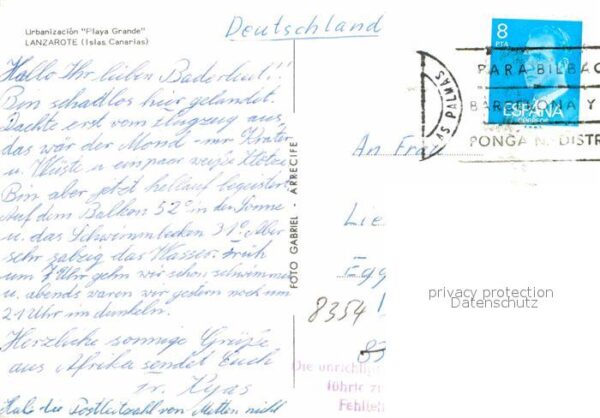 Urbanización "Playa Grande"
LANZAROTE (Islas Canarias)
Deutschland
Hallo Ihr lieben Baderleut!!
Bin schadlos hier gelandet.
Dachte erst vom Flugzeug aus,
das wär der Mond - nur Krater
u. Wüste u. ein paar weiße Klötze
Bin aber jetzt hellauf begeistert
Auf dem Balkon 52° in der Sonne
u. das Schwimmbecken 31° Aber
sehr salzig das Wasser. Früh
um 7 Uhr gehn wir schon schwimmen
u. abends waren wir gestern noch um
21 Uhr im dunkeln.
Herzliche sonnige Grüße
aus Afrika sendet Euch
Fr.
Habe die Postleitzahl von Metten nicht
FOTO GABRIEL - ARRECIFE
8
PTA
ESPAÑA
CORREOS
AS PALMAS
PARA BILBAO
BARCELONA Y
PONGA N. DISTR
An Frau
Lie
Egg
8354
83
Die unrichtige
führte zu
Fehlleit
privacy protection
Datenschutz